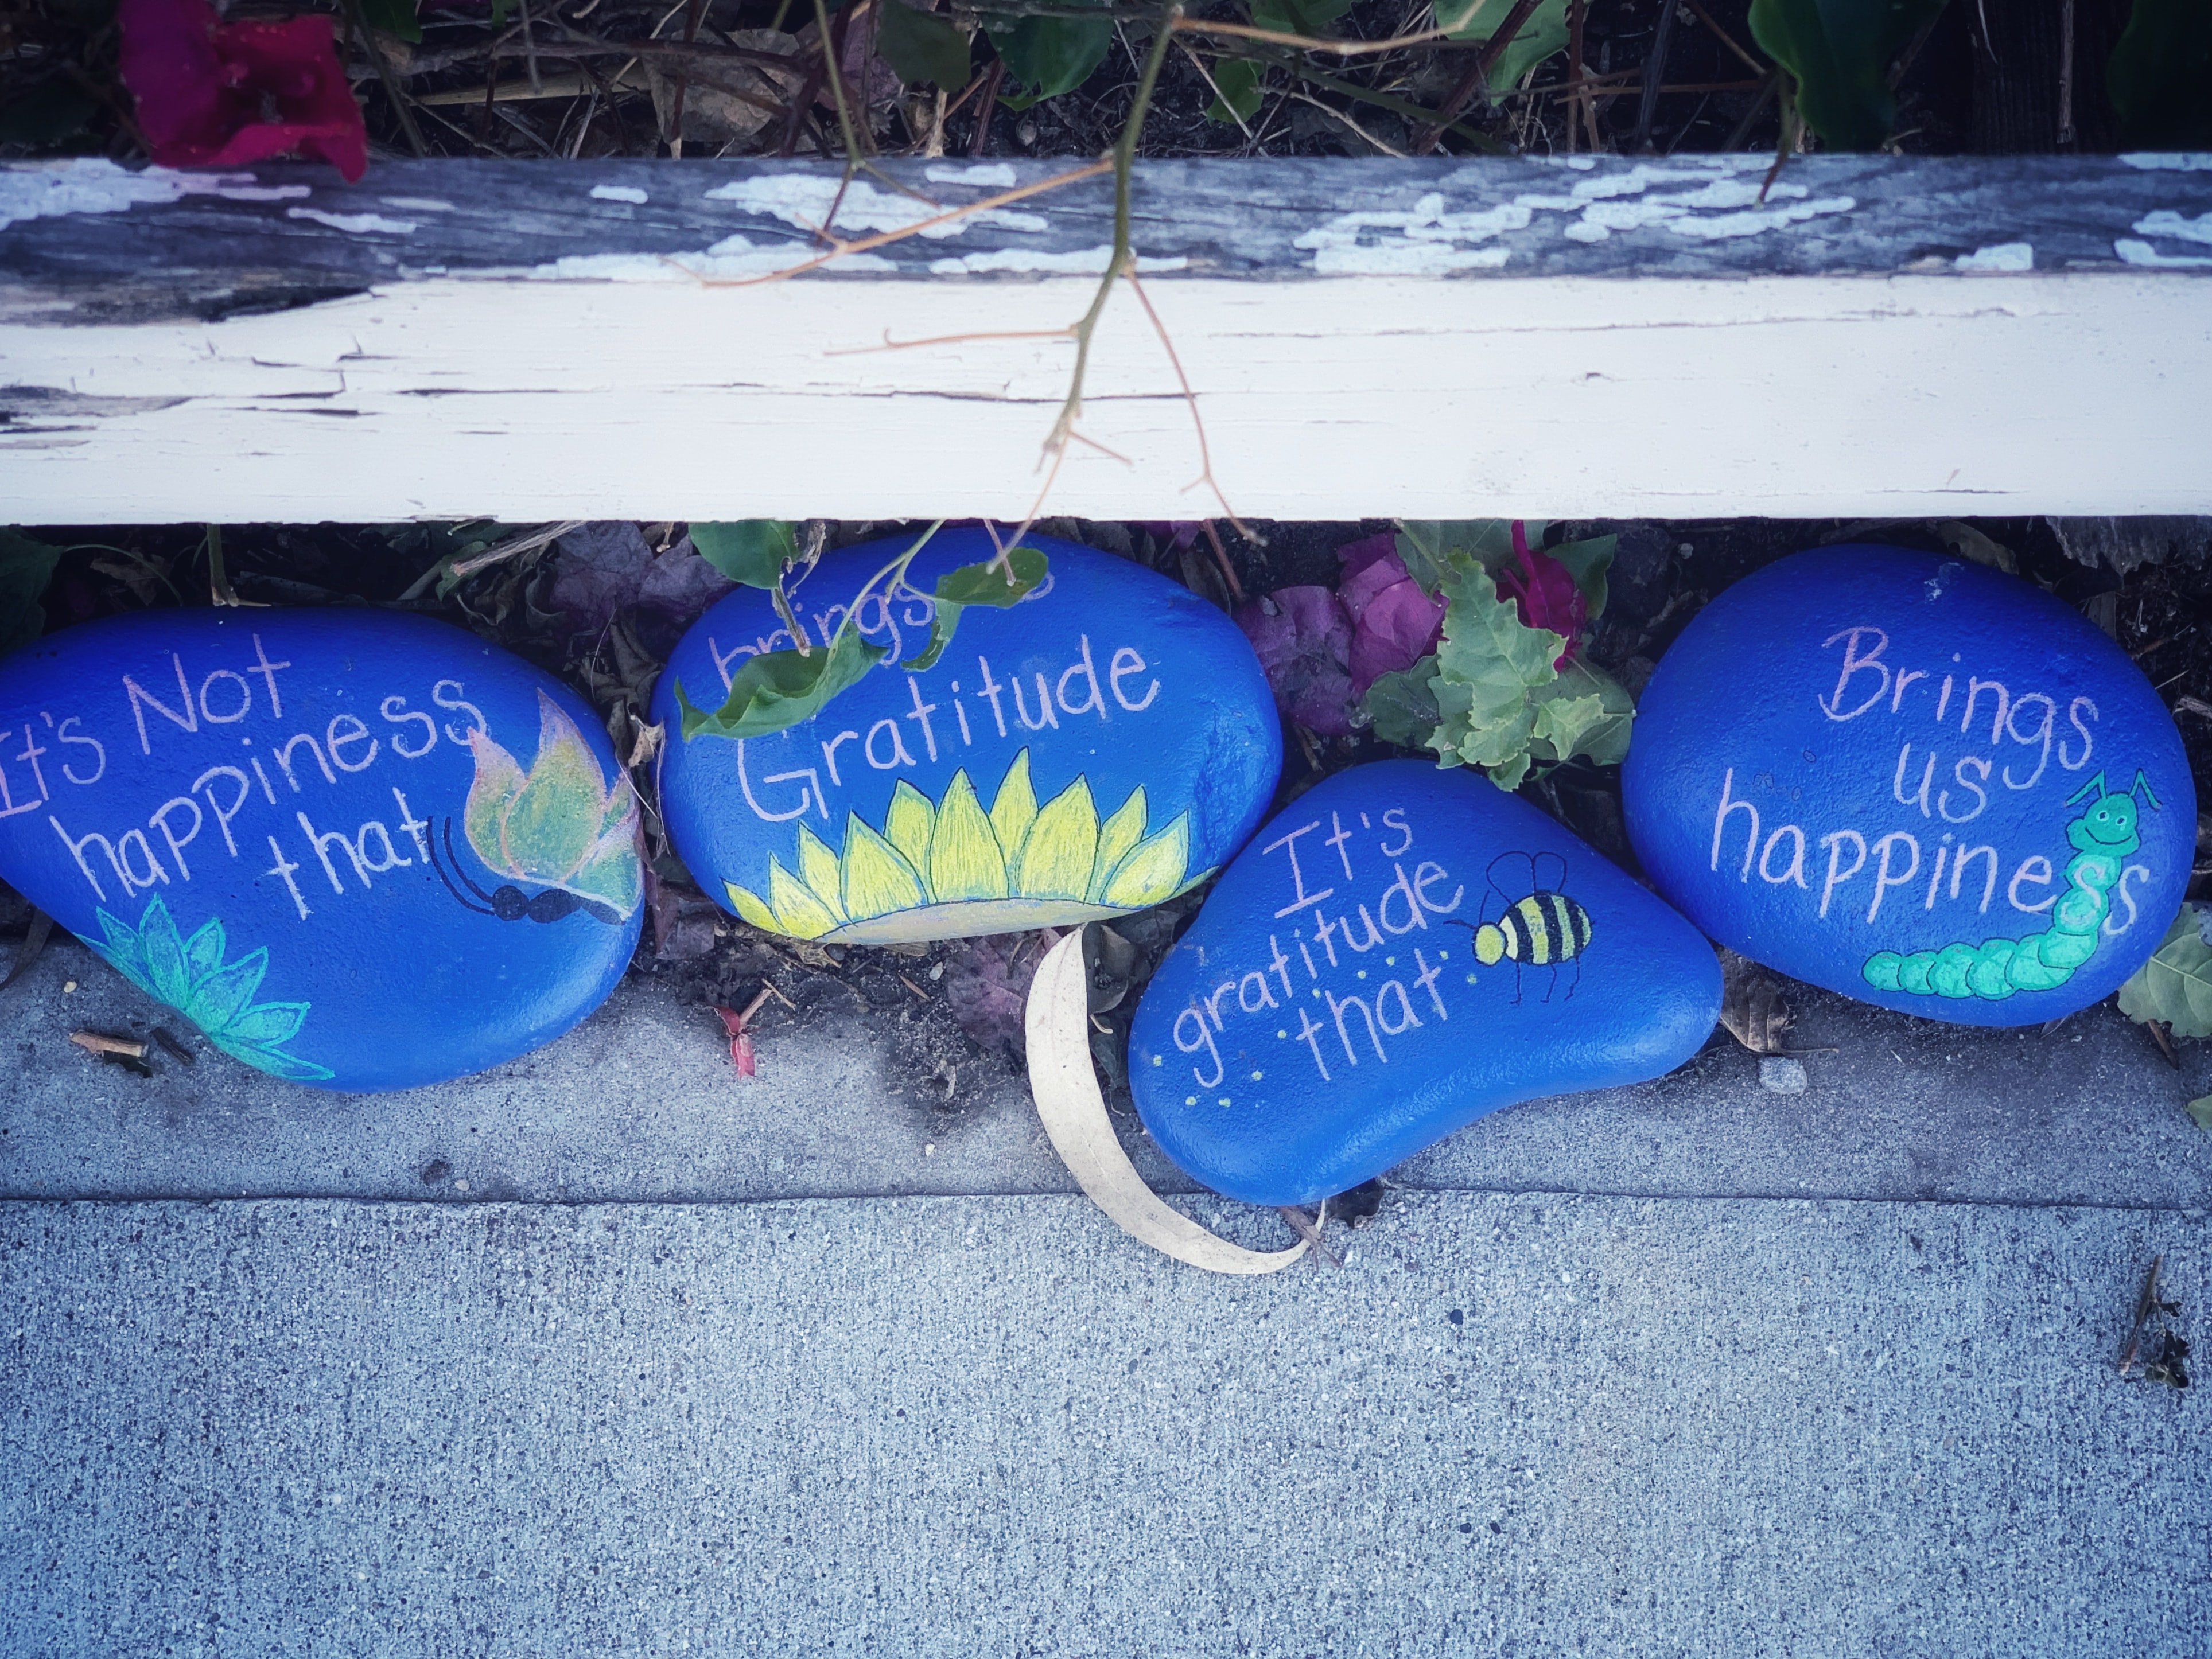 It's Not
happiness
that
brings
Gratitude
It's
gratitude
that
Brings
us
happiness